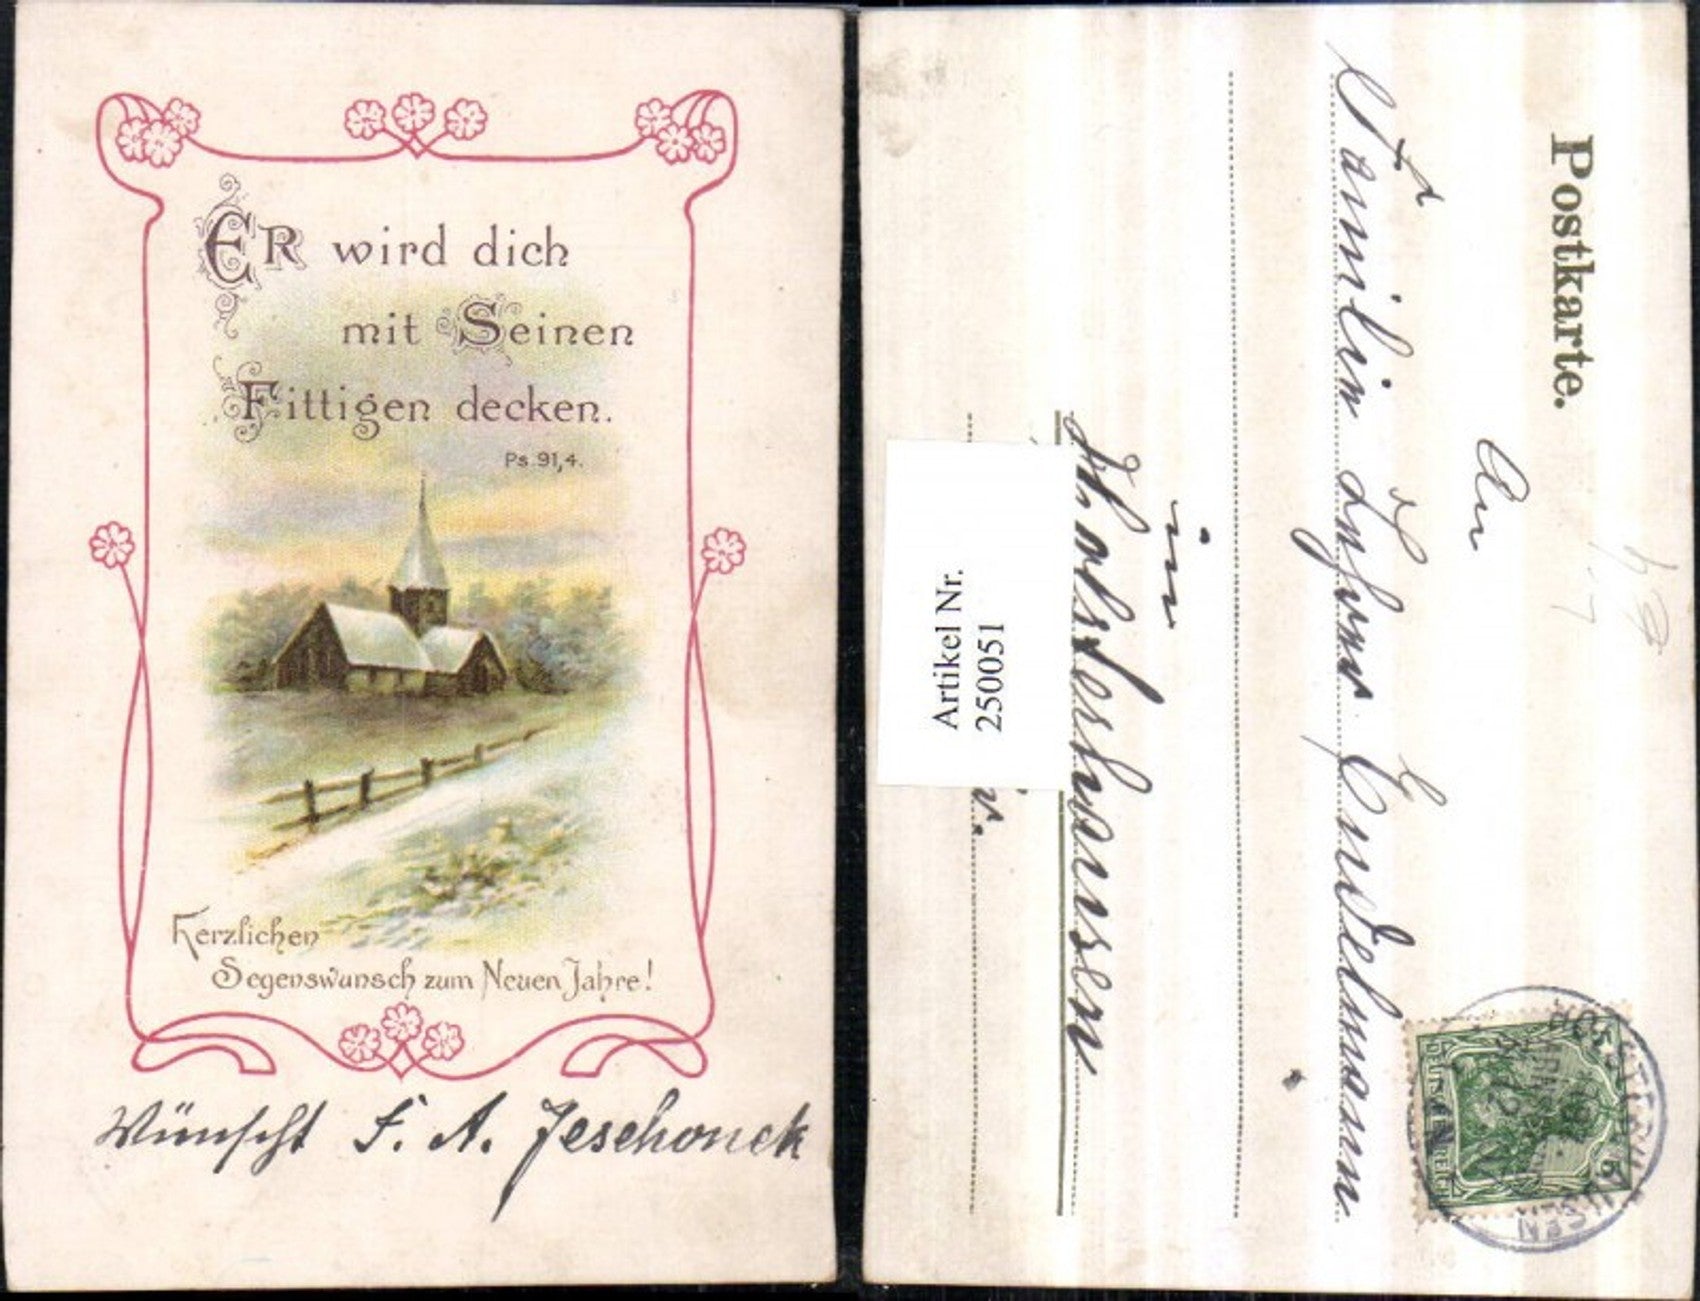 ER wird dich
mit Seinen
Fittigen decken.
Ps. 91,4.
Herzlichen
Segenswunsch zum Neuen Jahre!
Wünscht F. A. Jeschonek
Postkarte.
An
Familie Lehrer Endelmann
in
Holsterhausen
Artikel Nr.
250051